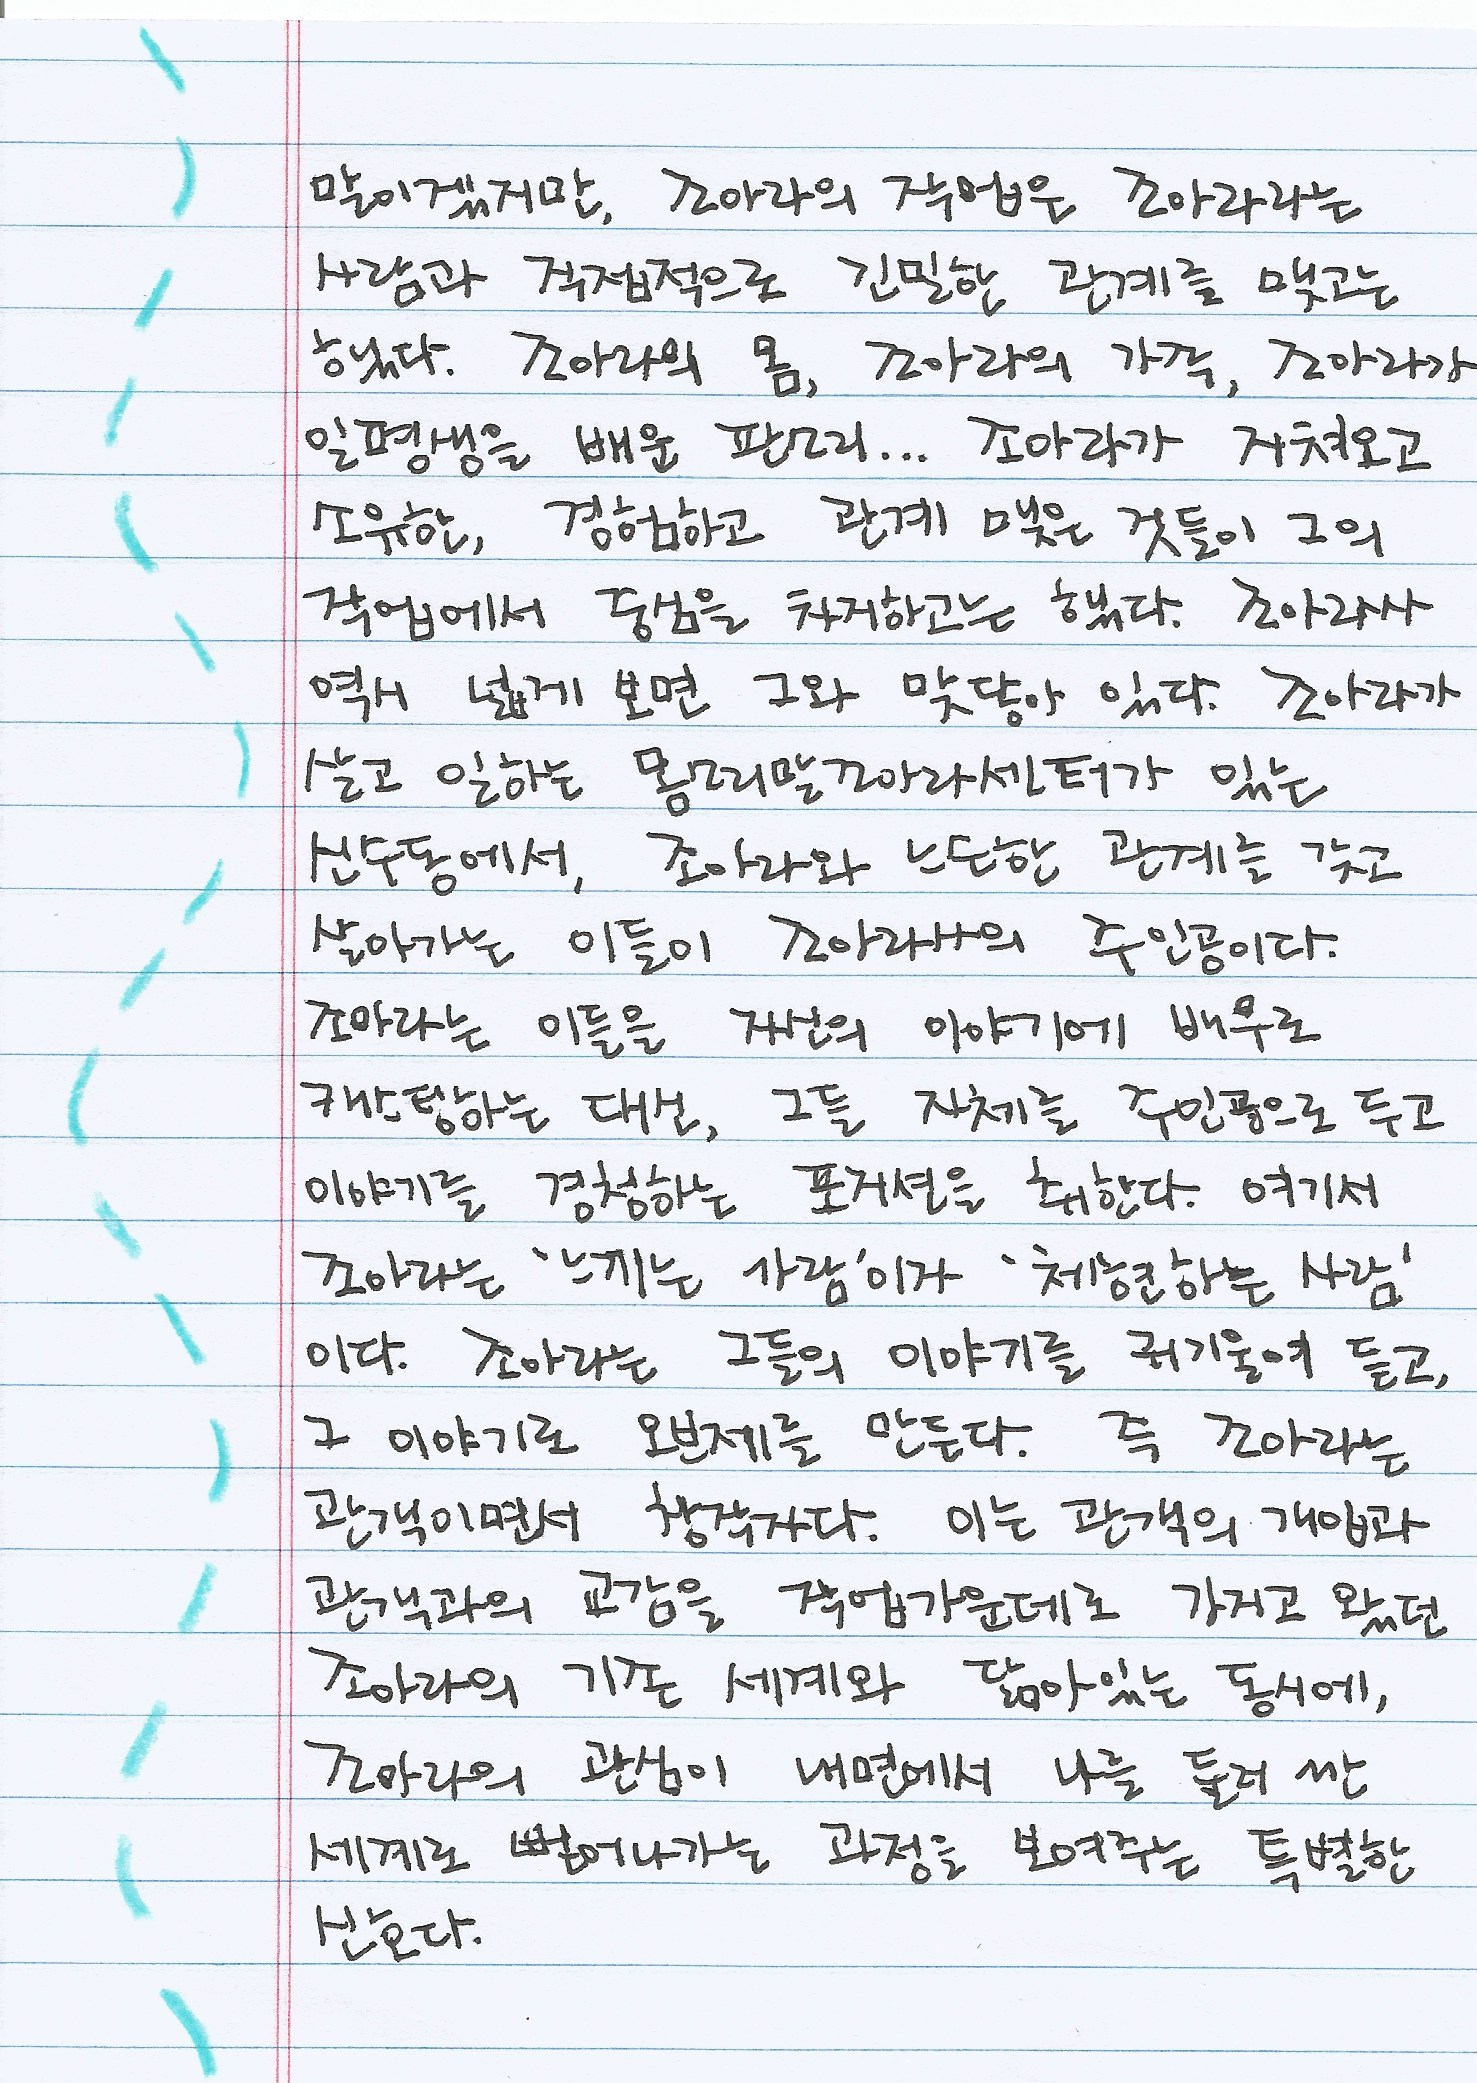 말이겠지만, 조아라의 작업은 조아라라는
사람과 직접적으로 긴밀한 관계를 맺고는
했다. 조아라의 몸, 조아라의 가족, 조아라가
일평생을 배운 판소리... 조아라가 거쳐오고
소유한, 경험하고 관계 맺은 것들이 그의
작업에서 중심을 차지하고는 했다. 조아라사
역시 넓게 보면 그와 맞닿아 있다. 조아라가
살고 일하는 몸소리말조아라센터가 있는
신수동에서, 조아라와 느슨한 관계를 갖고
살아가는 이들이 조아라사의 주인공이다.
조아라는 이들을 자신의 이야기에 배우로
캐스팅하는 대신, 그들 자체를 주인공으로 두고
이야기를 경청하는 포지션을 취한다. 여기서
조아라는 '느끼는 사람'이자 '체현하는 사람'
이다. 조아라는 그들의 이야기를 귀기울여 듣고,
그 이야기로 오브제를 만든다. 즉 조아라는
관객이면서 창작자다. 이는 관객의 개입과
관객과의 교감을 작업가운데로 가지고 왔던
조아라의 기존 세계와 닮아있는 동시에,
조아라의 관심이 내면에서 나를 둘러 싼
세계로 뻗어나가는 과정을 보여주는 특별한
신호다.